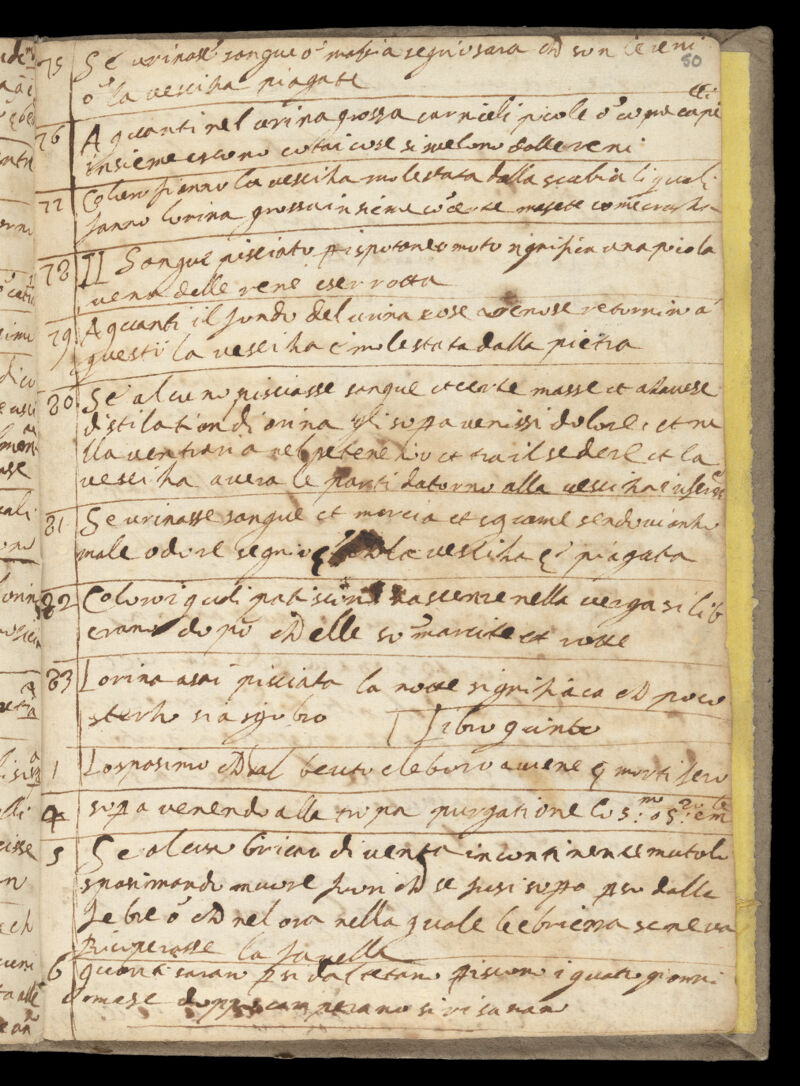 50
75 Se urinasse sangue o' marcia segnio sara ch' son le reni
o' la vescicha piagate
76 A quanti nel urina grossa carnicoli picole o' come capeli
insieme escono cotai cose si melono dalle reni
77 Coloro fianno la vescicha molestata dalla scabia li quali
fanno lorina grossa insieme
78 Il Sangue pisciato significa una picola
vena delle rene eser rotta
79 A quanti il fondo del urina cose arenose retornino a'
questi la vescicha e' molestata dalla pietra
80 Se alcuno pisciasse sangue et certe masse et avesse
distilation di orina gli sopravenissi dolore et ne
lla ventraria nel petenechio et tra il sedere et la
vescicha avera le parti datorno alla vescicha
81 Se urinasse sangue et marcia et squame sendovi ancho
male odore segnio la vescicha e' piagata
82 Coloro i quali patiscono nascenze nella verga si lib
erano dopo ch' elle so' marcite et rotte
83 Lorina asai pisciata la notte significa ch' poco
sterco sia
Libro quinto
1 Lo spasimo ch' dal beuto eleboro aviene e' mortifero
4 sopra venendo alla tropa purgatione lo
5 Se alcun briaco diventa incontinente mutolo
spasimando muore fuori ch' se fusi sopra preso dalla
febre o' ch' nel ora nella quale lebrieza
Ricuperasse la favella
6 quanti saran presi dal tetano periscono i quatro giorni
o mase doppo scamperano si risanano